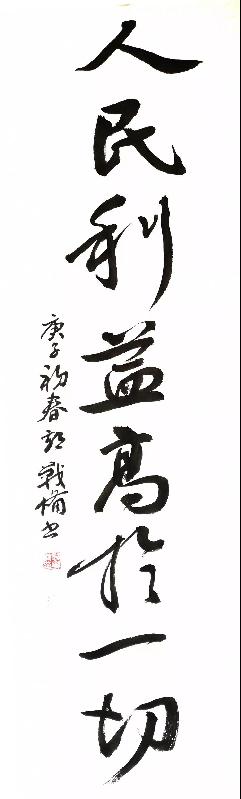 人民利益高於一切
庚子初春郭戰備書